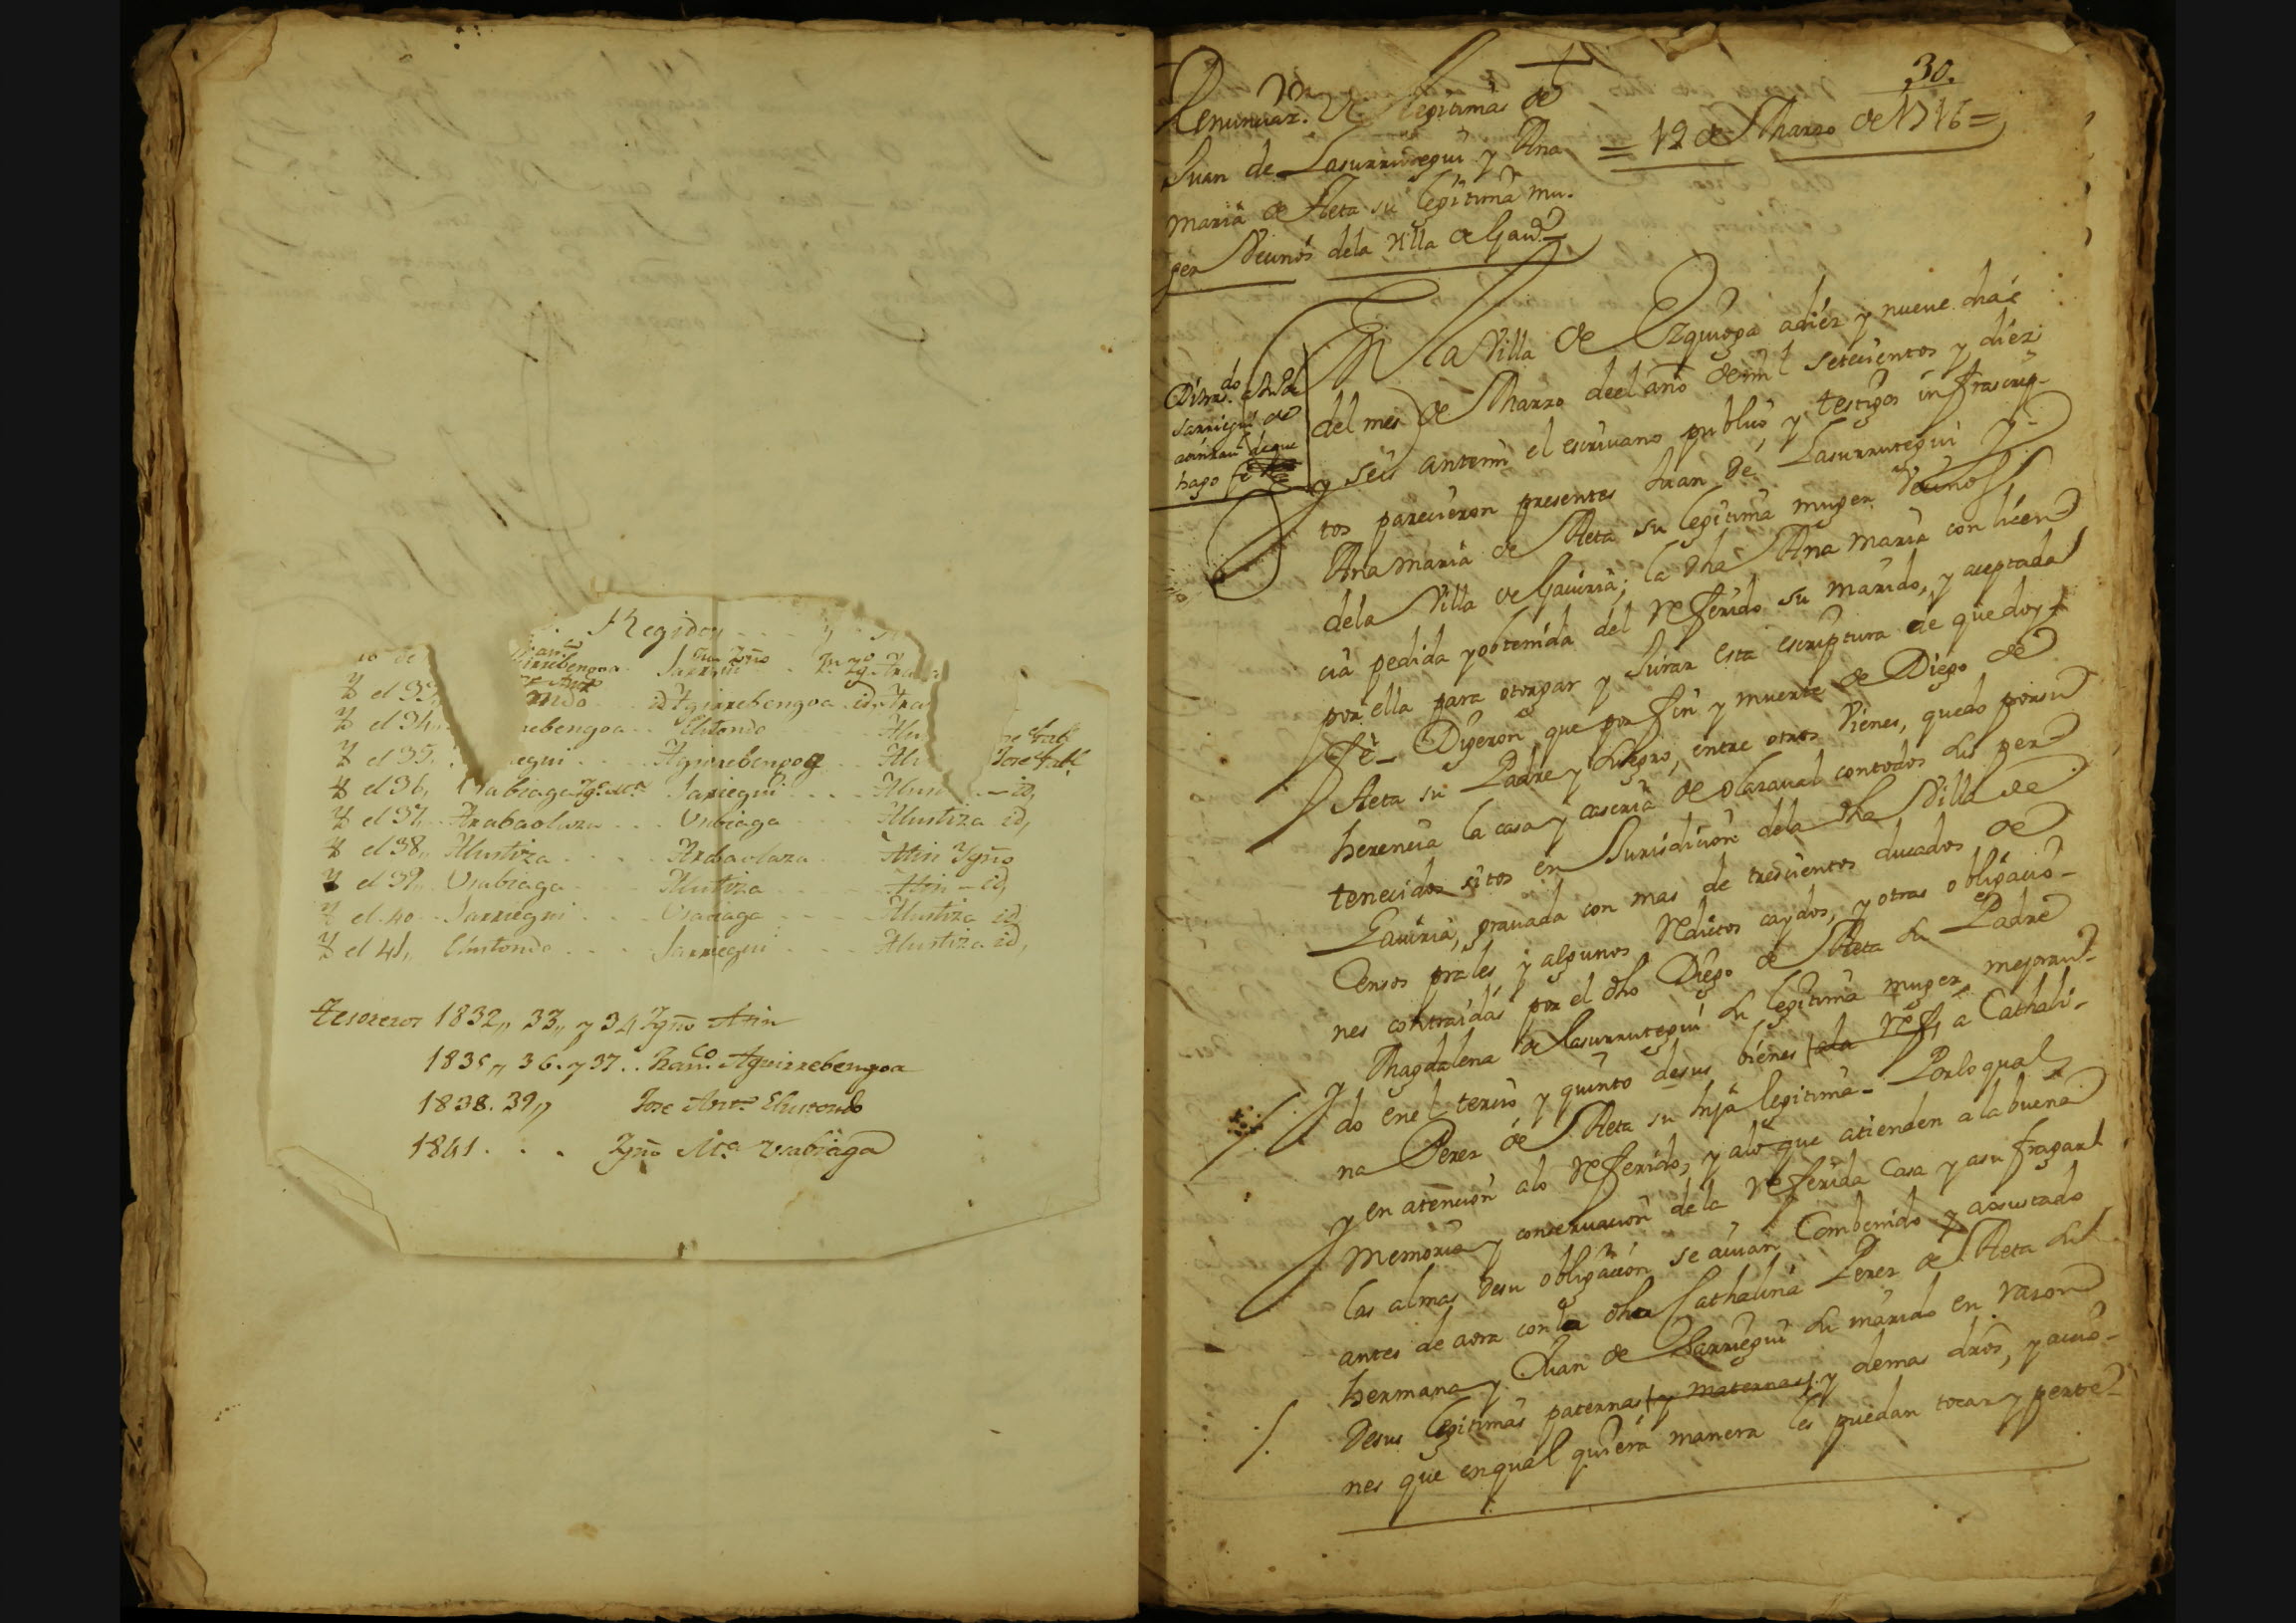 Regidor
el 33,, id Agirrebengoa id,
el 34,, Elustondo
el 35, egui Agirrebengoa
Jose
el 36, Usabiaga Sarriegui id,
el 37,, Arabaolaza Usabiaga Alustiza id,
el 38,, Alustiza Arabaolaza Atin Ygno
el 39,, Usabiaga Alustiza Atin id,
el 40 Sarriegui Usabiaga Alustiza id
el 41,, Elustondo Sarriegui Alustiza id,
tesoreros 1832,, 33,, y 34 Ygno Atin
1835,, 36. y 37 . . Franco. Aguirrebengoa
1838. 39,, Jose Anto Elustondo
1841 . . . Ygno Ma. Usabiaga
30.
Renunciaz.on de legitimas de
Juan de Lasurrutegui y Ana
= 19 de Marzo de 1716 =
maria de Aeta su legitima mu-
ger Vecinos dela Villa de Gaua.
En la Villa de Ezquioga adiez y nueve dias
del mes de Marzo deel año de mil setecientos y diez
y seis antemi el escrivano publico y testigos infrascrip-
tos parecieron presentes Juan de Lasurrutegui y
Ana maria de Aeta su legitima muger Vecinos
dela Villa de Gauiria; la dha Ana maria con licen
cia pedida y obtenida del referido su marido, y aceptada
por ella para otorgar y Jurar esta escriptura de que doy
fe - Dijeron que por fin y muerte de Diego de
Aeta su Padre y suegro, entre otros Vienes, quedo por su
herencia la casa y caseria de olazaval contodos sus per
tenecidos sitos en Jurisdicion dela dha Villa de
Gauiria, gravada con mas de trescientos ducados de
Censos prales y algunos reditos caydos, y otras obligacio-
nes contraidas por el dho Diego de Aeta su Padre
y Magdalena de Lasurrutegui su legitima muger mejoran-
do enel tercio y quinto desus bienes a la a Cathali-
na Perez de Aeta su hija legitima - Por lo qual
y en atencion alo referido, y alo que atienden a la buena
memoria y conservacion dela referida Casa y asu fragar
las almas desu obligacion se auian Combenido y assustado
antes de aora con la dha Cathalina Perez de Aeta su
hermana y Juan de Sarriegui su marido en razon
Desus legitimas paternas y maternas y demas dros, y accio-
nes que enqual quiera manera les puedan tocar y perte-